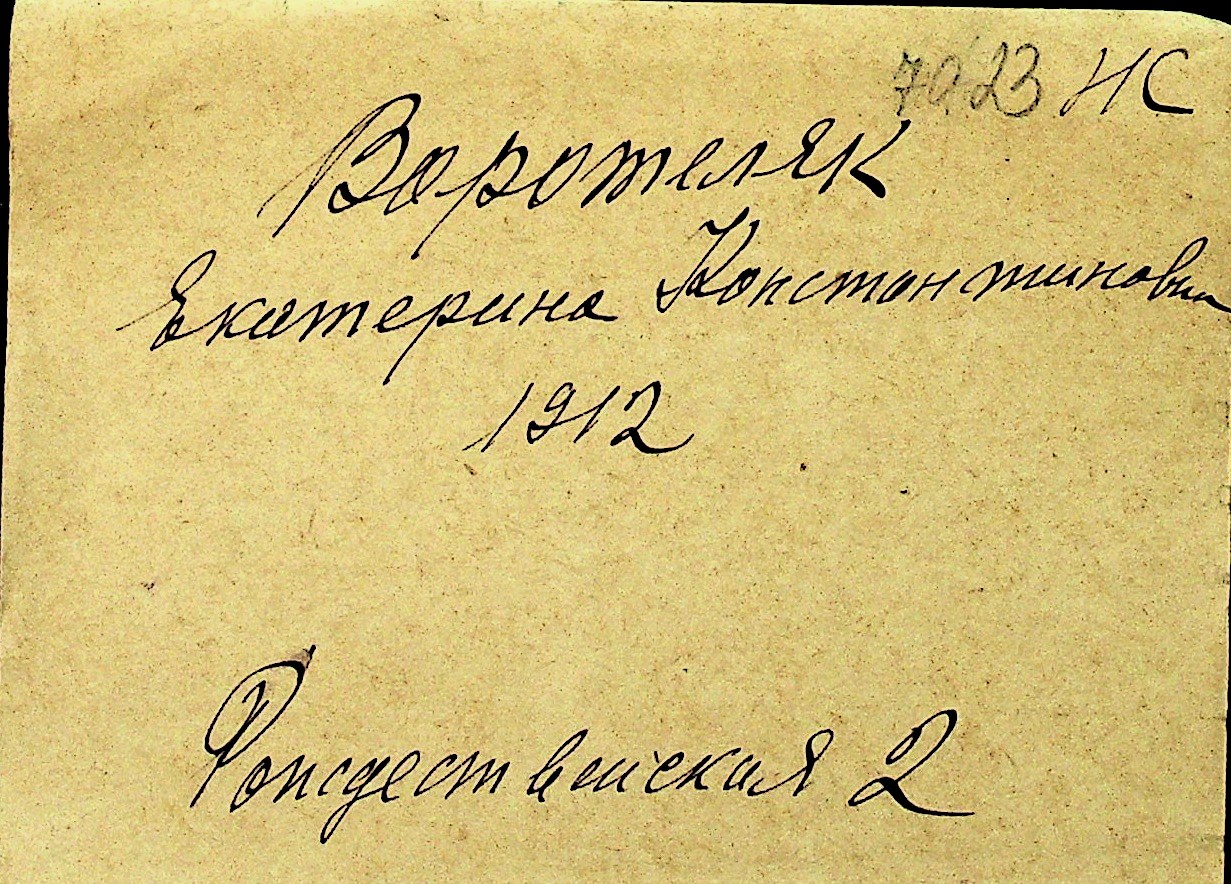 7023 НС
Воротеляк
Екатерина Константиновна
1912
Рождественская 2